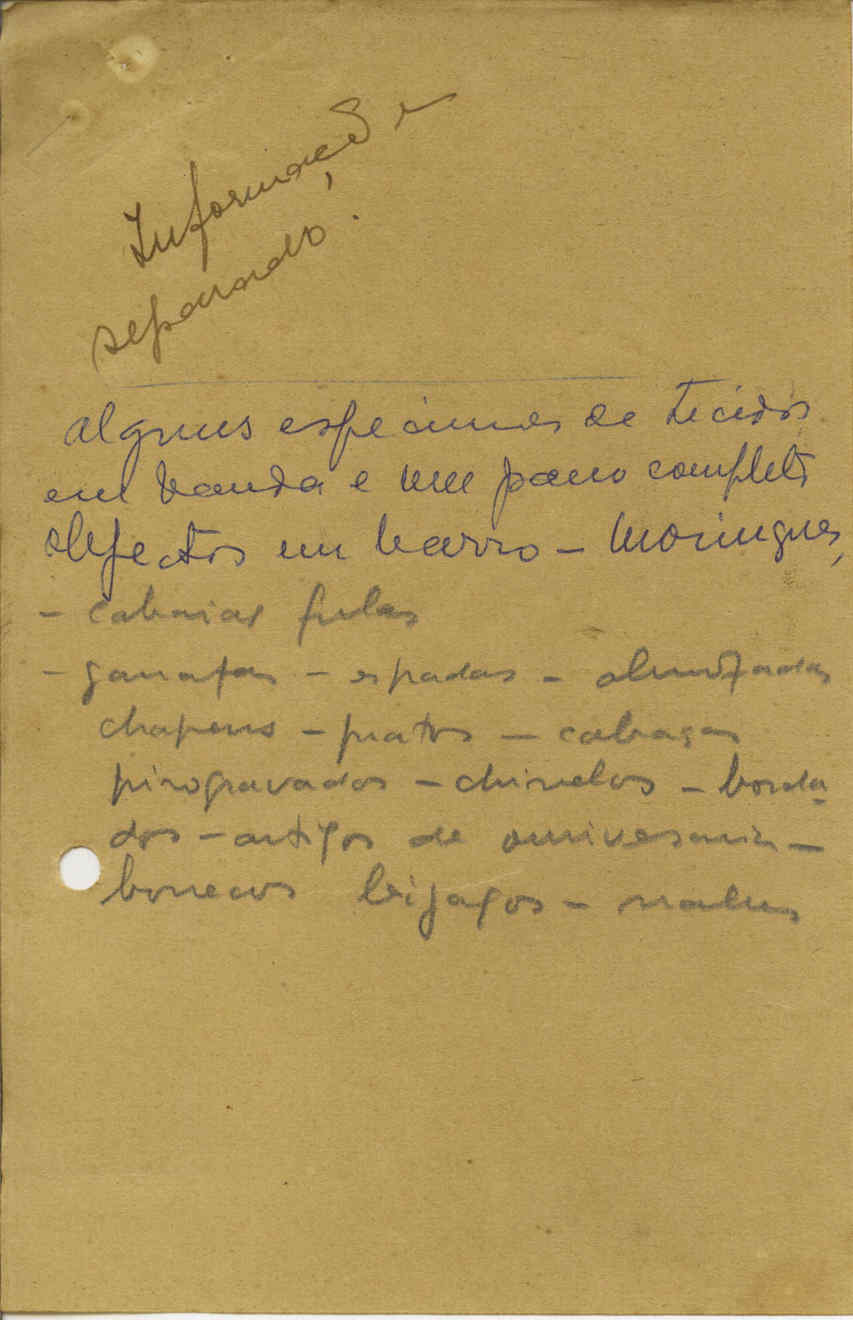 Informação
separado.
alguns espécimes de tecidos
em banda e um pano completo
objectos em barro – moringues,
- cabaias fulas
- garrafas - espadas - almofadas
chapeus - pratos - cabaças
pirogravados - chinelos - borda-
dos - artigos de
bonecos bijagos - nalus